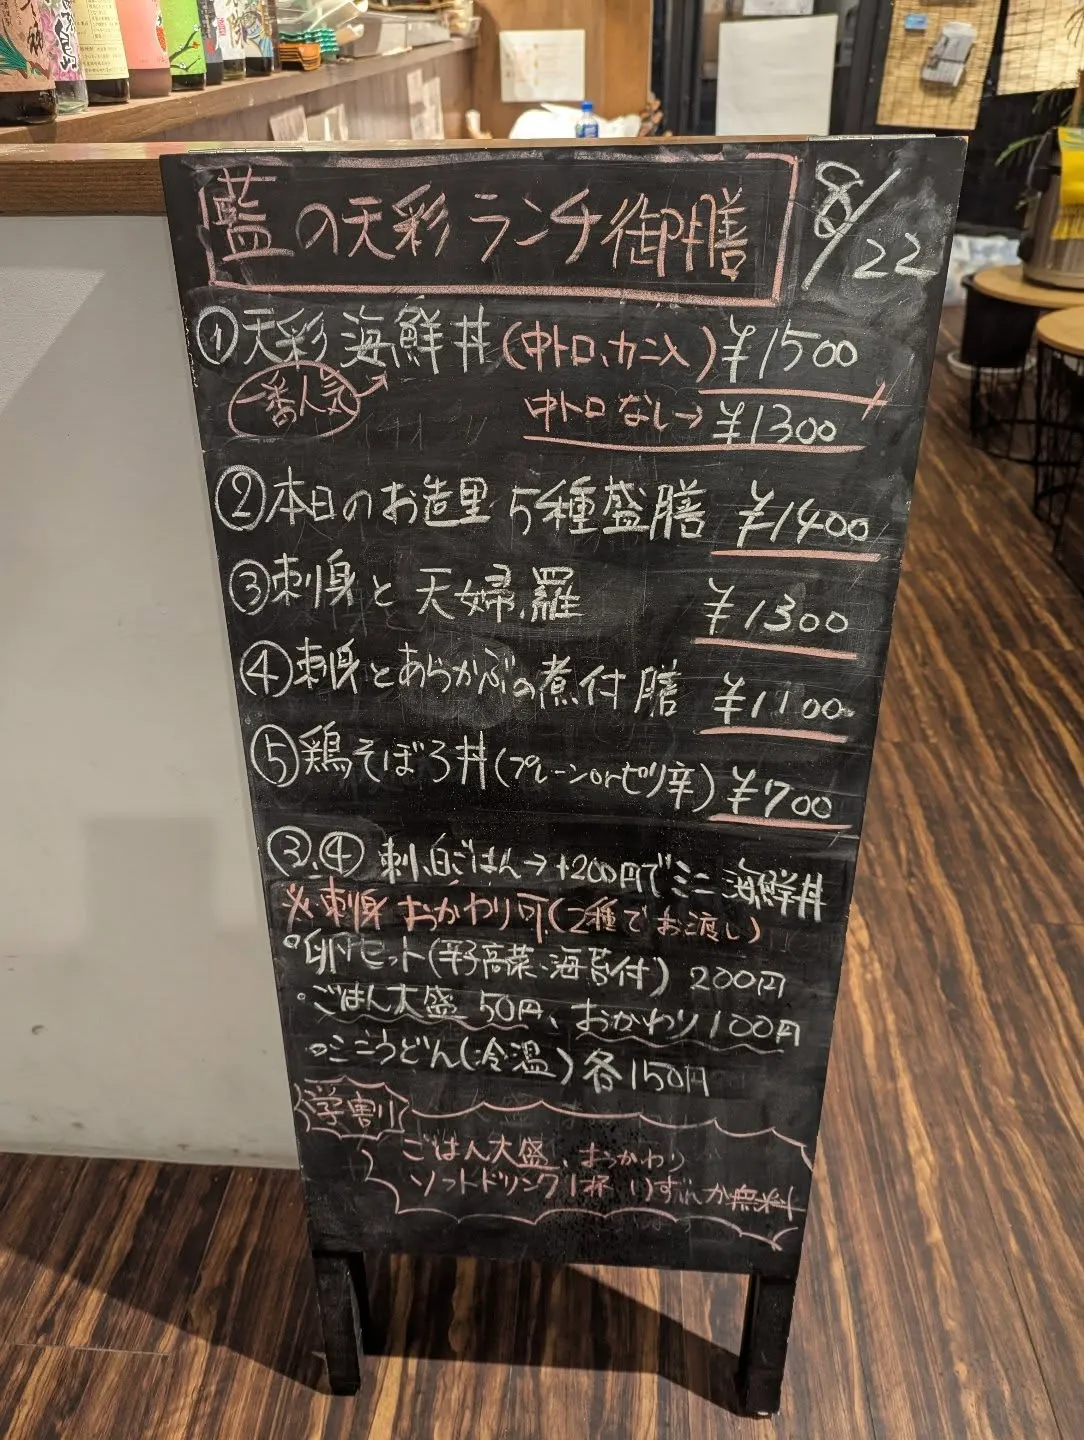 藍の天彩ランチ御膳 8/22
①天彩海鮮丼(中トロ、カニ入)¥1500
一番人気 中トロなし→¥1300
②本日のお造里5種盛膳 ¥1400
③刺身と天婦羅 ¥1300
④刺身とあらかぶの煮付膳 ¥1100
⑤鶏そぼろ丼(プレーンorピリ辛)¥700
③、④ 刺、白ごはん→+200円でミニ海鮮丼
※刺身おかわり可(2種でお渡し)
卵セット(辛子高菜、海苔付)200円
ごはん大盛50円、おかわり100円
ミニうどん(冷温)各150円
学割
ごはん大盛、おかわり
ソフトドリンク1杯 いずれか無料